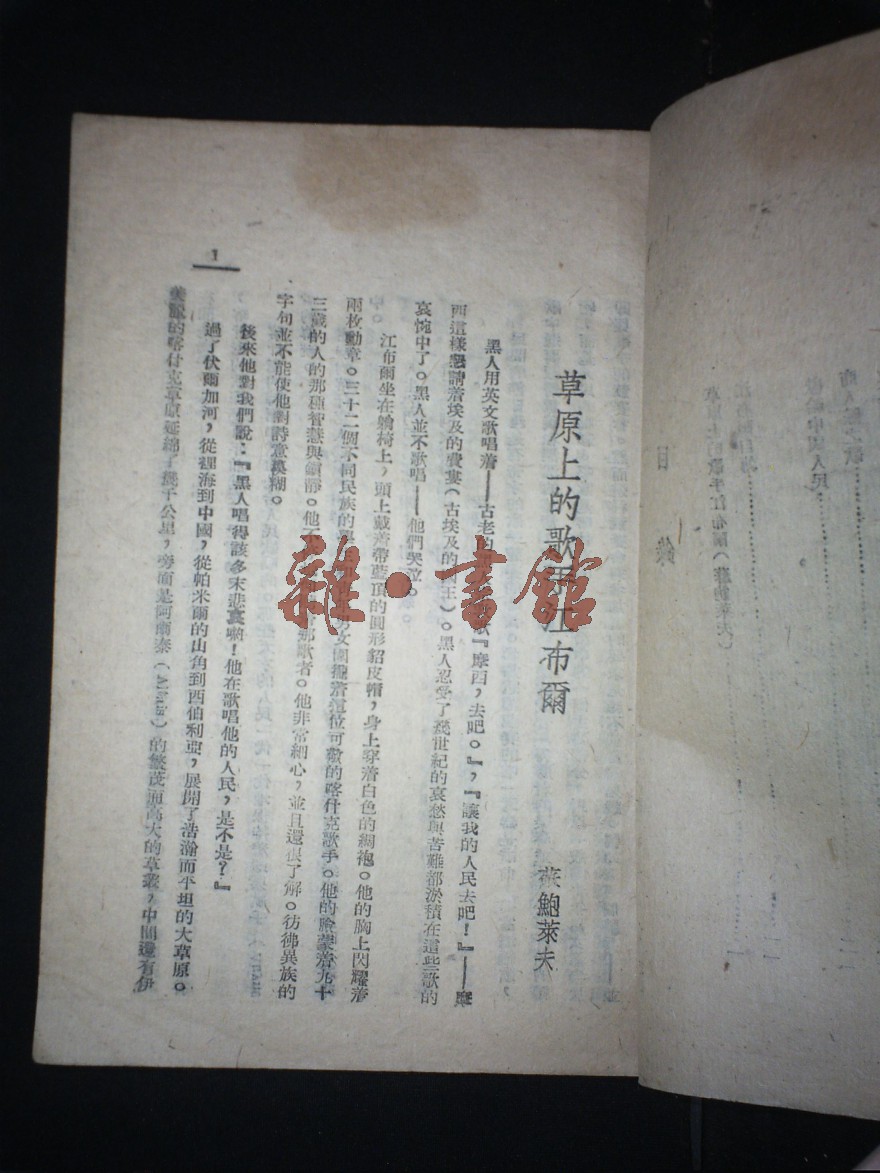 目
錄
草原上的歌手江布爾(蘇鮑萊夫)
獻給中國人民
草原上的歌手江布爾
蘇鮑萊夫
黑人用英文歌唱着——古老的歌『摩西,去吧。』,『讓我的人民去吧!』——摩
西這樣懇請着埃及的費婁(古埃及的王)。黑人忍受了幾世紀的哀愁與苦難都淤積在這些歌的
哀惋中了。黑人並不歌唱——他們哭泣。
江布爾坐在躺椅上,頭上戴着帶藍頂的圓形貂皮帽,身上穿着白色的綢袍。他的胸上閃耀着
兩枚勳章。三十二個不同民族的男女圍攏着這位可敬的喀什克歌手。他的臉蒙着九十
三歲的人的那種智慧與鎮靜。他不那歌者。他非常細心,並且還很了解。彷彿異族的
字句並不能使他對詩意模糊。
後來他對我們說:『黑人唱得該多末悲哀喲!他在歌唱他的人民,是不是?』
過了伏爾加河,從裡海到中國,從帕米爾的山角到西伯利亞,展開了浩瀚而平坦的大草原。
美麗的喀什克草原延綿了幾千公里,旁面是阿爾泰()的繁茂而高大的草叢,中間還有伊
1
雜·書館